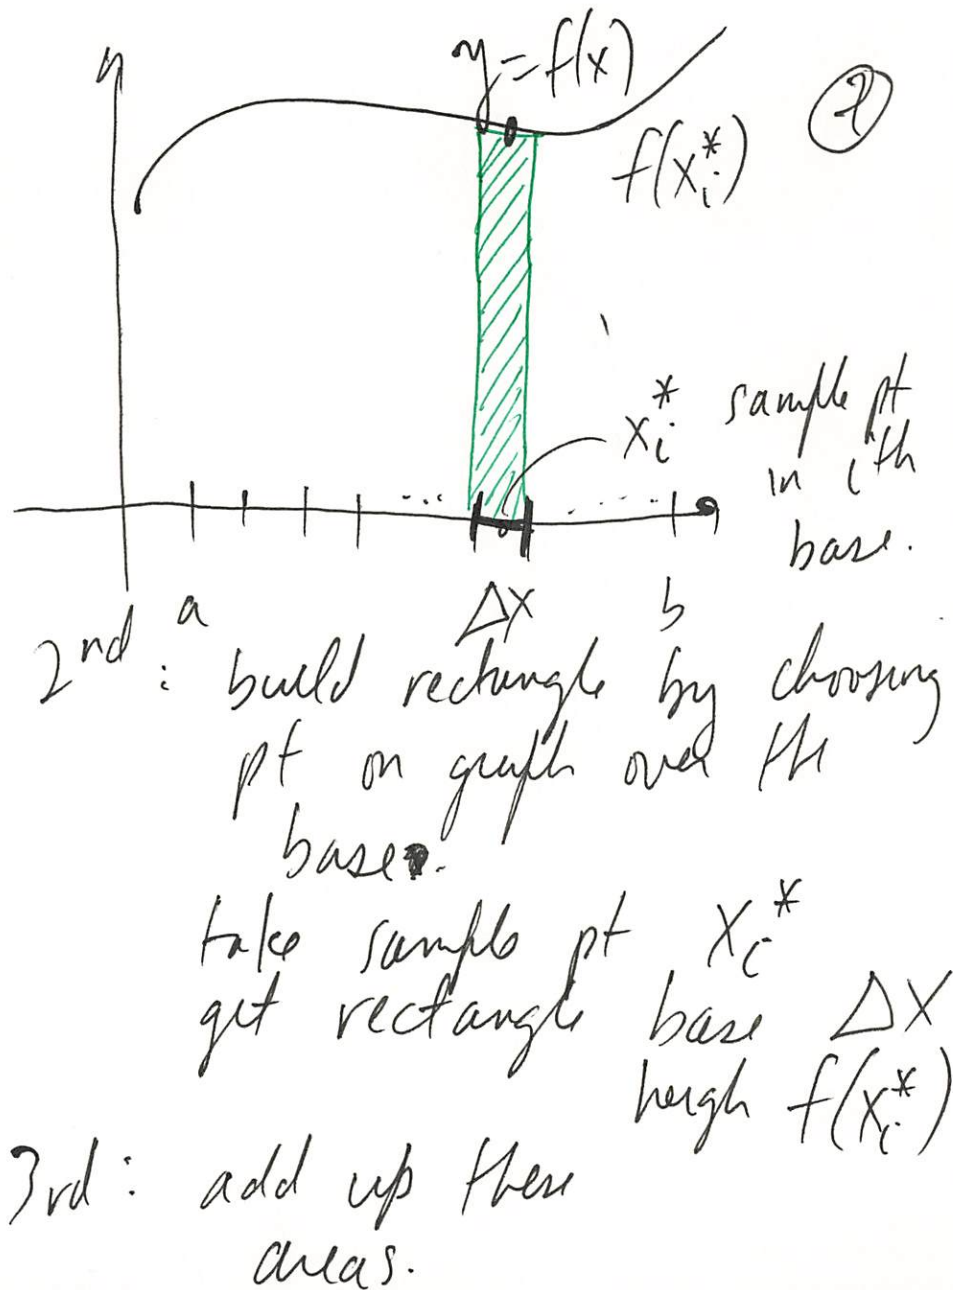 y
y = f(x)
②
f(x_i^*)
x_i^* sample pt
in ith
base.
a Δx b
2nd : build rectangle by choosing
pt on graph over the
base.
take sample pt x_i^*
get rectangle base Δx
heigh f(x_i^*)
3rd : add up these
areas.